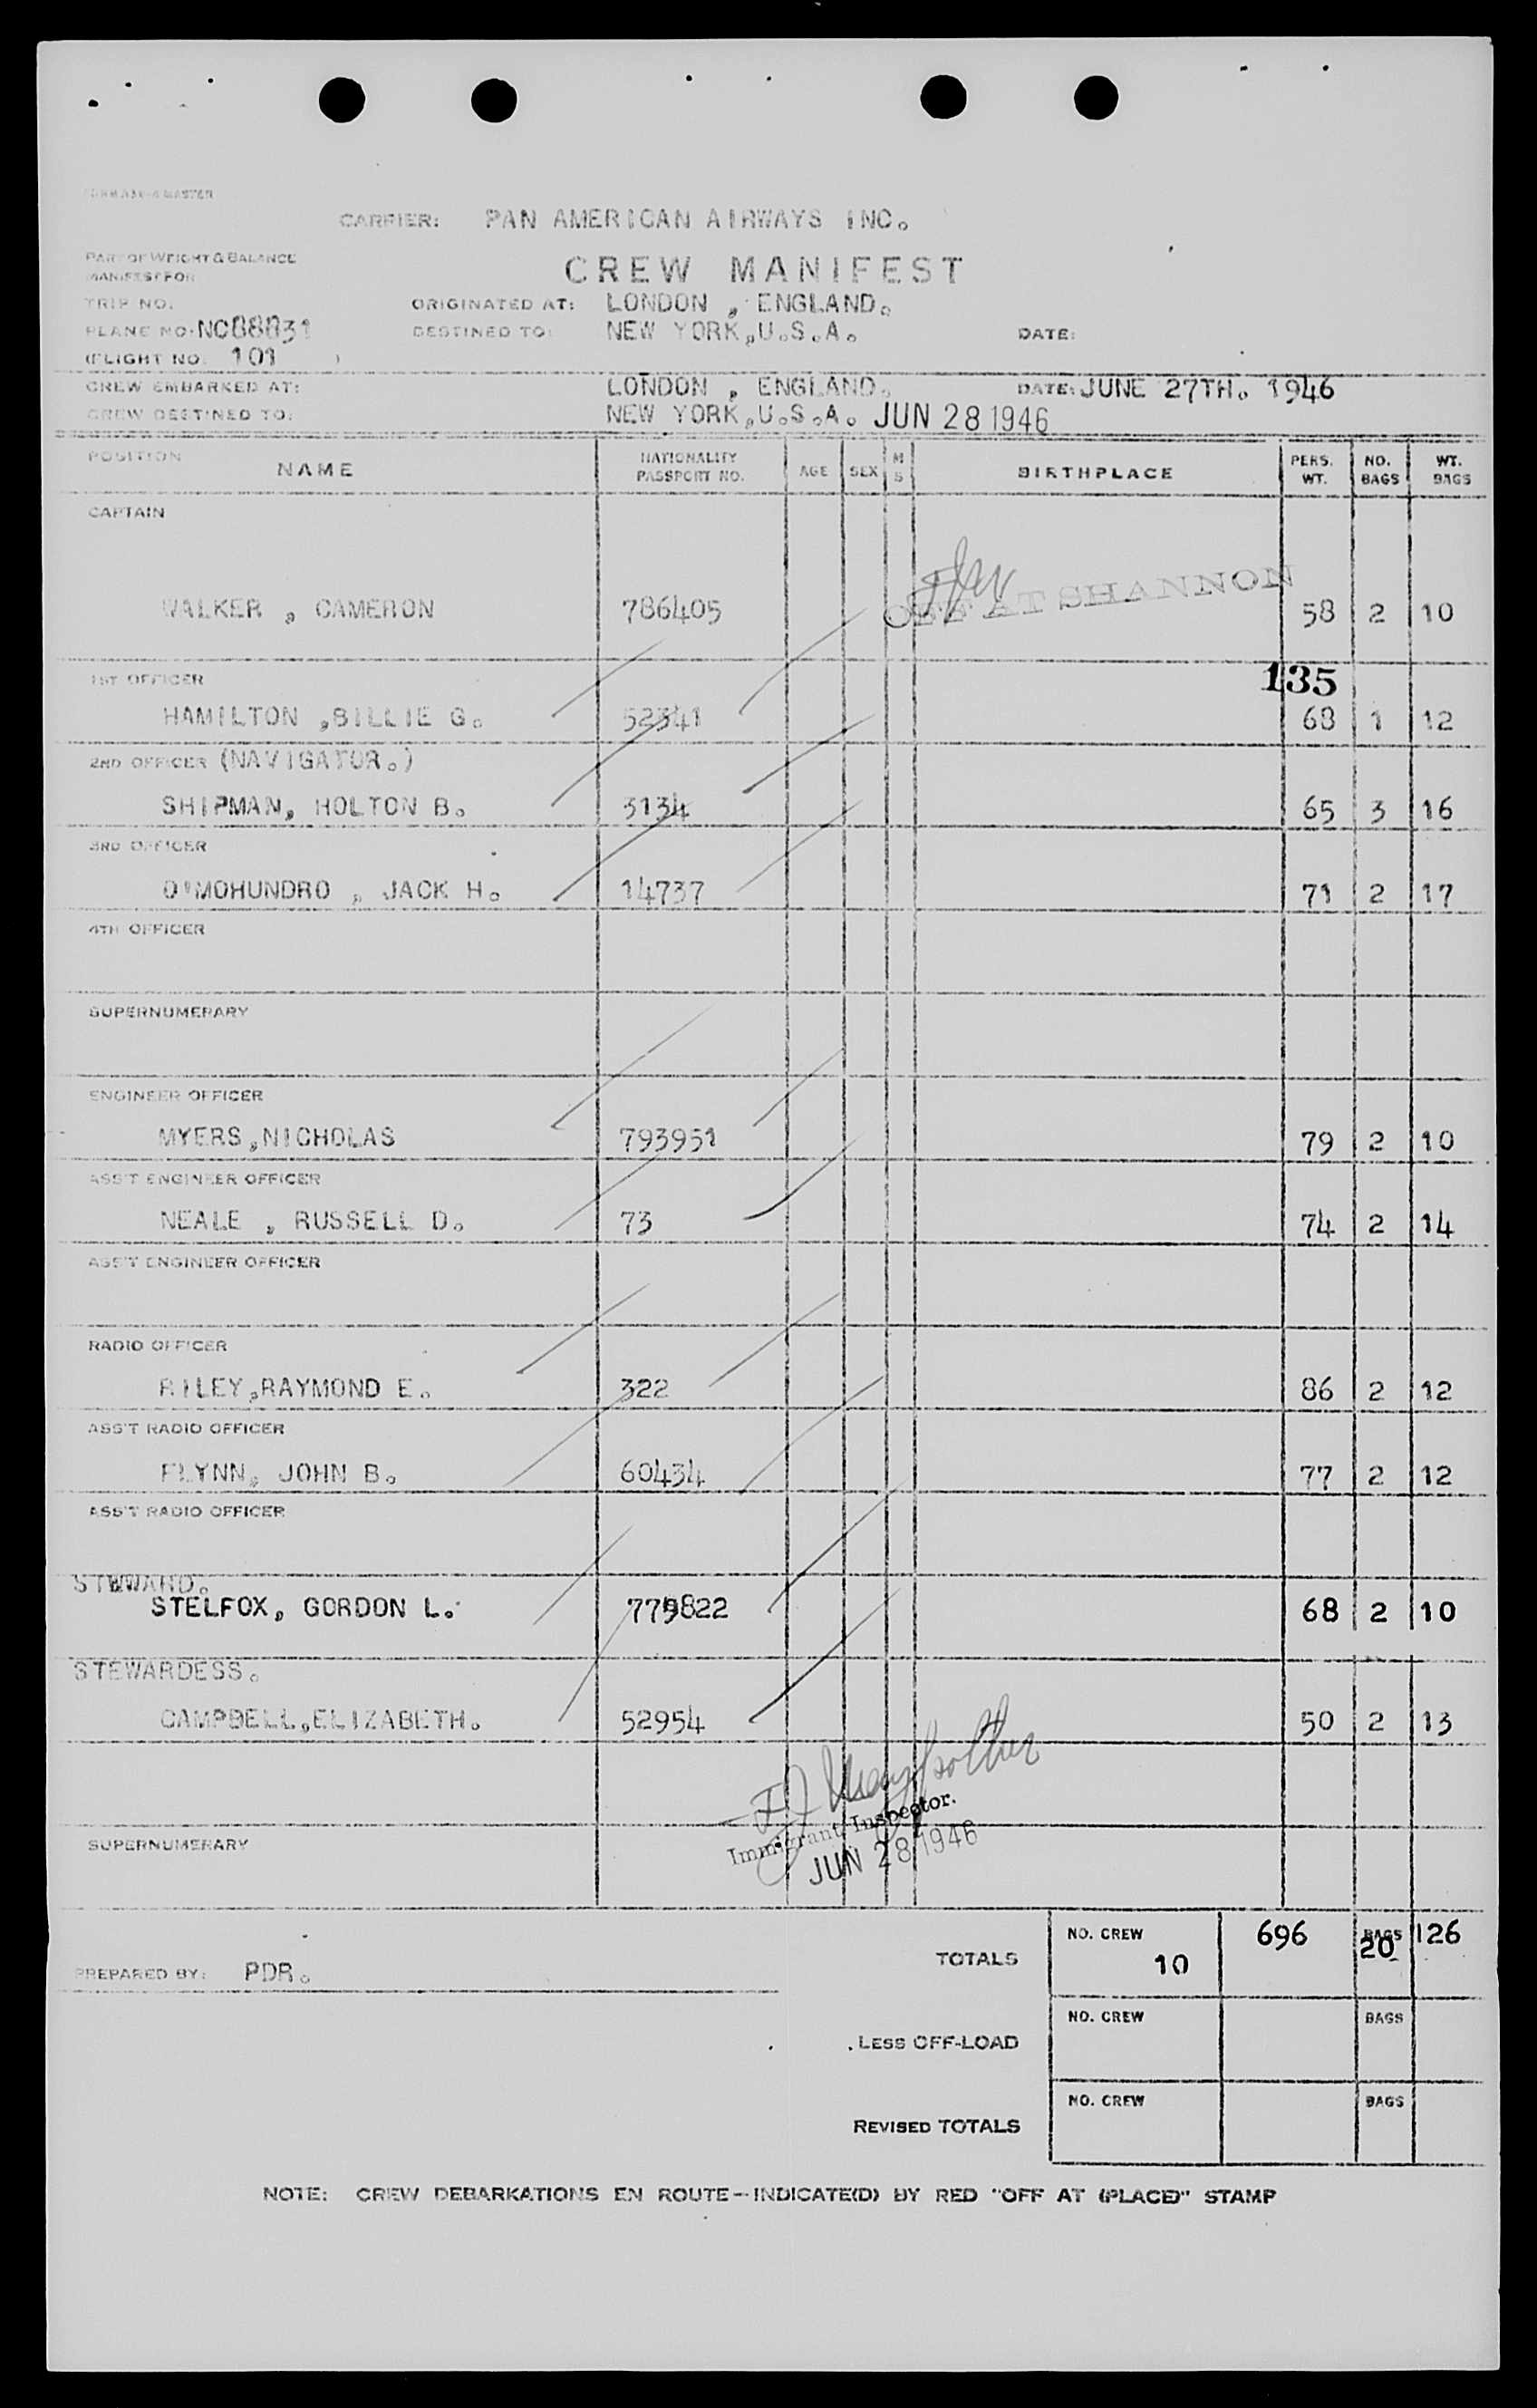 CARRIER: PAN AMERICAN AIRWAYS INC.
PART OF WEIGHT & BALANCE
MANIFEST FOR
CREW MANIFEST
TRIP NO. ORIGINATED AT: LONDON , ENGLAND.
PLANE NO. NC88831 DESTINED TO: NEW YORK,U.S.A. DATE:
(FLIGHT NO. 101 )
CREW EMBARKED AT: LONDON , ENGLAND. DATE: JUNE 27TH. 1946
CREW DESTINED TO: NEW YORK,U.S.A. JUN 28 1946
POSITION NAME NATIONALITY PASSPORT NO. AGE SEX M S BIRTHPLACE PERS. WT. NO. BAGS WT. BAGS
CAPTAIN
OFF AT SHANNON
WALKER , CAMERON 786405 58 2 10
135
1ST OFFICER
HAMILTON ,BILLIE G. 52341 68 1 12
2ND OFFICER (NAVIGATOR.)
SHIPMAN, HOLTON B. 3134 65 3 16
3RD OFFICER
O'MOHUNDRO , JACK H. 14737 71 2 17
4TH OFFICER
SUPERNUMERARY
ENGINEER OFFICER
MYERS,NICHOLAS 793951 79 2 10
ASS'T ENGINEER OFFICER
NEALE , RUSSELL D. 73 74 2 14
ASS'T ENGINEER OFFICER
RADIO OFFICER
RILEY,RAYMOND E. 322 86 2 12
ASS'T RADIO OFFICER
FLYNN, JOHN B. 60434 77 2 12
ASS'T RADIO OFFICER
STEWARD.
STELFOX, GORDON L. 779822 68 2 10
STEWARDESS.
CAMPBELL,ELIZABETH. 52954 50 2 13
Immigrant Inspector.
JUN 28 1946
SUPERNUMERARY
TOTALS NO. CREW 10 696 BAGS 20 126
PREPARED BY: PDR.
LESS OFF-LOAD NO. CREW BAGS
REVISED TOTALS NO. CREW BAGS
NOTE: CREW DEBARKATIONS EN ROUTE—INDICATE(D) BY RED "OFF AT (PLACE)" STAMP